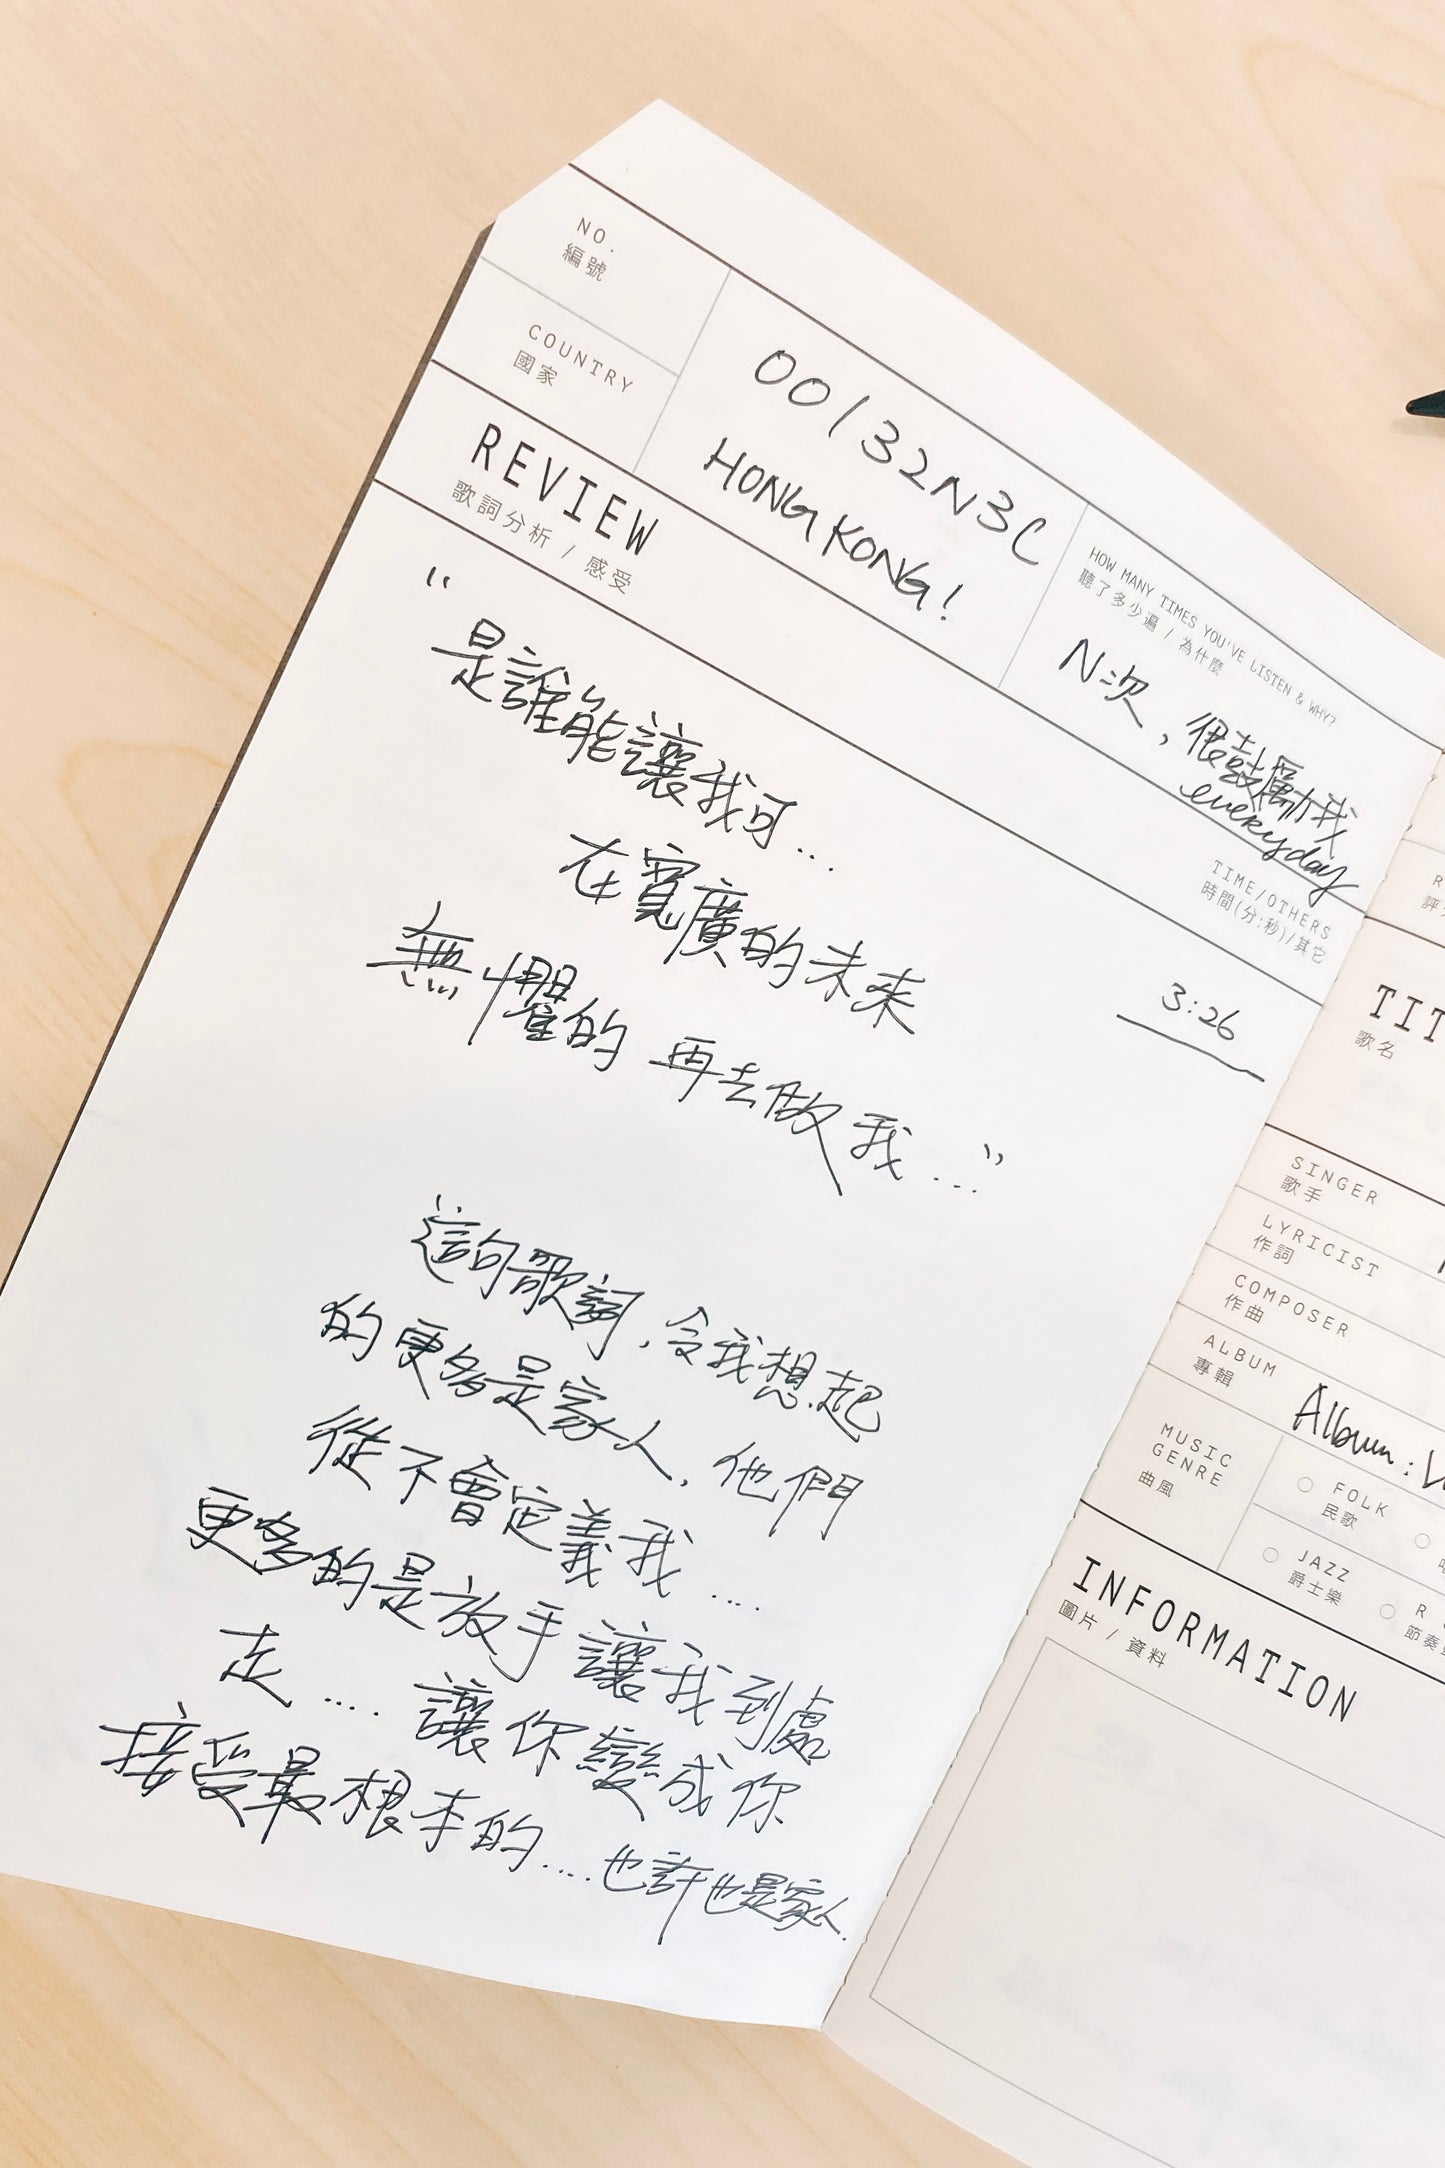 NO.
編號
00132N3C
COUNTRY
國家
HONG KONG!
HOW MANY TIMES YOU'VE LISTEN & WHY?
聽了多少遍 / 為什麼
N次，很鼓勵我
everyday
REVIEW
歌詞分析 / 感受
TIME/OTHERS
時間(分:秒)/其它
3:26
“是誰能讓我可...
在寬廣的未來
無懼的 再去做我...”
這句歌詞，令我想起
的更多是家人，他們
從不會定義我....
更多的是放手讓我到處
走....讓你變成你
接受最根本的....也許也是家人.
TIT
歌名
SINGER
歌手
LYRICIST
作詞
COMPOSER
作曲
ALBUM
專輯
Album:
MUSIC
GENRE
曲風
FOLK
民歌
JAZZ
爵士樂
R
節奏
INFORMATION
圖片 / 資料